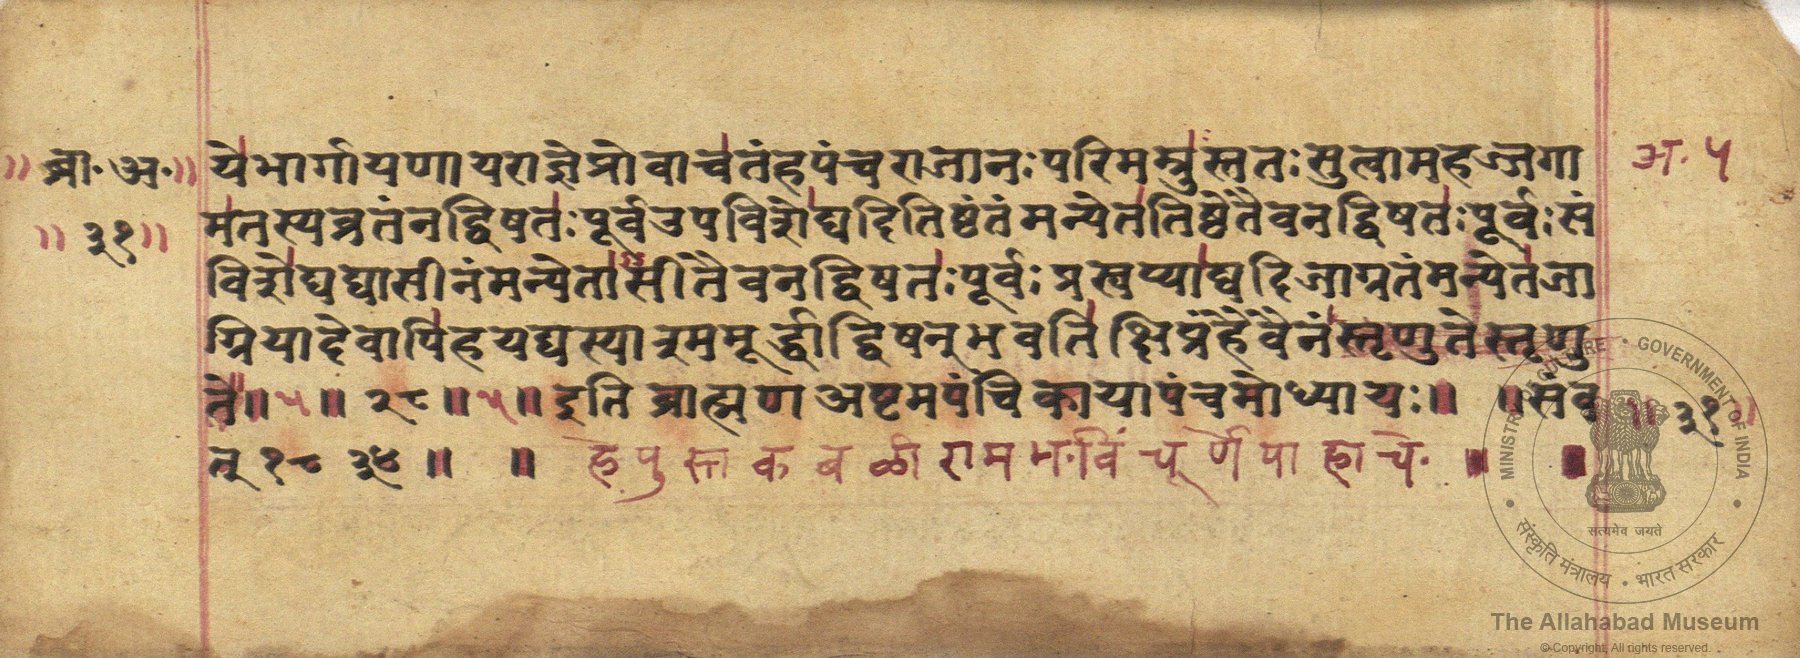 ॥ ब्रा॰ अ॰ ॥ ये भार्गायणाय राज्ञे प्रोवाच तं ह पंच राजानः परिमम्रुस्ततः सुत्वा महज्जगा अ॰ ५
॥ ३१ ॥ म तस्य व्रतं न द्विषतः पूर्व उपविशेद्यदि तिष्ठंतं मन्येत तिष्ठेतैव न द्विषतः पूर्वः सं
विशेद्यद्यासीनं मन्येतासीतैव न द्विषतः पूर्वः प्रस्वप्याद्यदि जाग्रतं मन्येत जा
ग्रियादेवापि ह यद्यस्याश्ममूर्द्धा द्विषन् भवति क्षिप्रं हैवैनं स्तृणुते स्तृणु
ते ॥ ५ ॥ २८ ॥ ५ ॥ इति ब्राह्मण अष्टमपंचिकाया पंचमोध्यायः ॥ ॥ संव ॥ ३१ ॥
त् १८३४ ॥ ॥ हे पुस्तक बळीराम भावि चूर्णे पाह्याचे॰ ॥
MINISTRY OF CULTURE • GOVERNMENT OF INDIA
सत्यमेव जयते
संस्कृति मंत्रालय • भारत सरकार
The Allahabad Museum
© Copyright, All rights reserved.